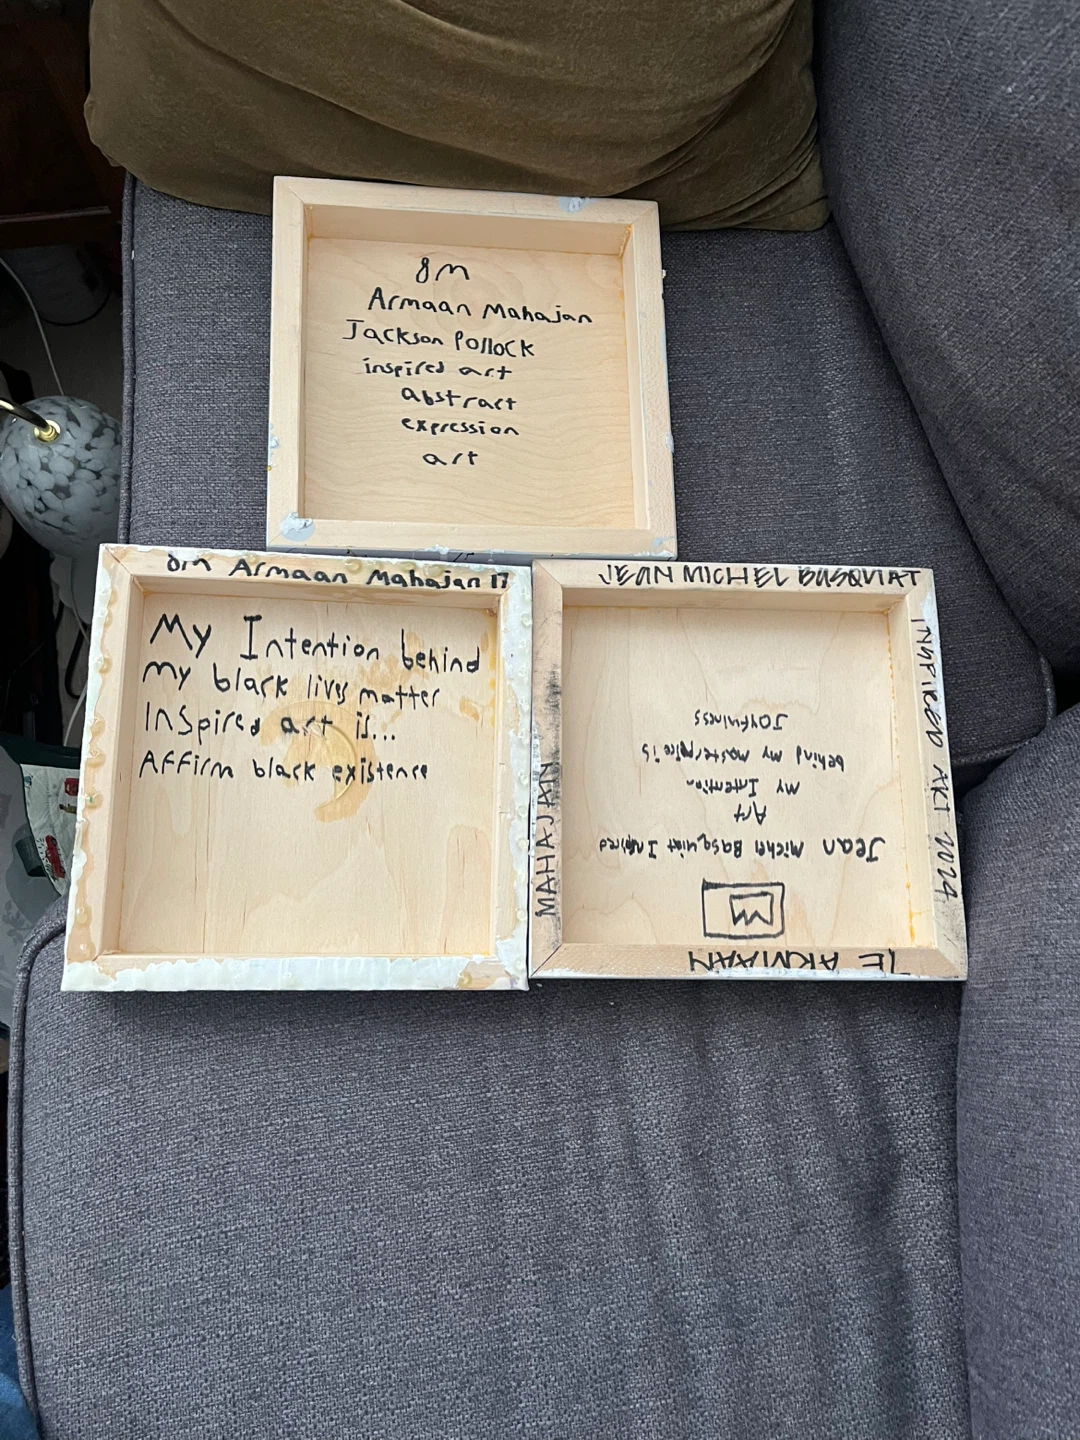 8m
Armaan Mahajan
Jackson Pollock
inspired art
abstract
expression
art
8m Armaan Mahajan 17
My Intention behind
my black lives matter
Inspired art is...
Affirm black existence
JEAN MICHEL BASQUIAT
INSPIRED ART 2024
7E ARMAAN
MAHAJAN
Jean Michel Basquiat Inspired
Art
My Intention
behind my masterpiece is
Joyfulness